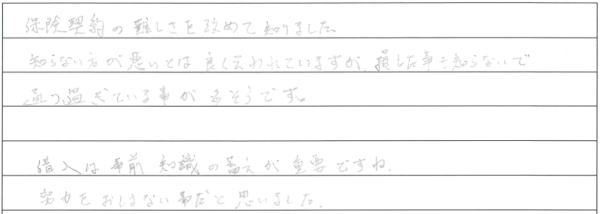 保険契約の難しさを改めて知りました。
知らない方が悪いとは良く云われていますが、損した事も知らないで
通り過ぎている事が多そうです。
借入は事前知識の蓄えが重要ですね。
努力をおしまない事だと思いました。